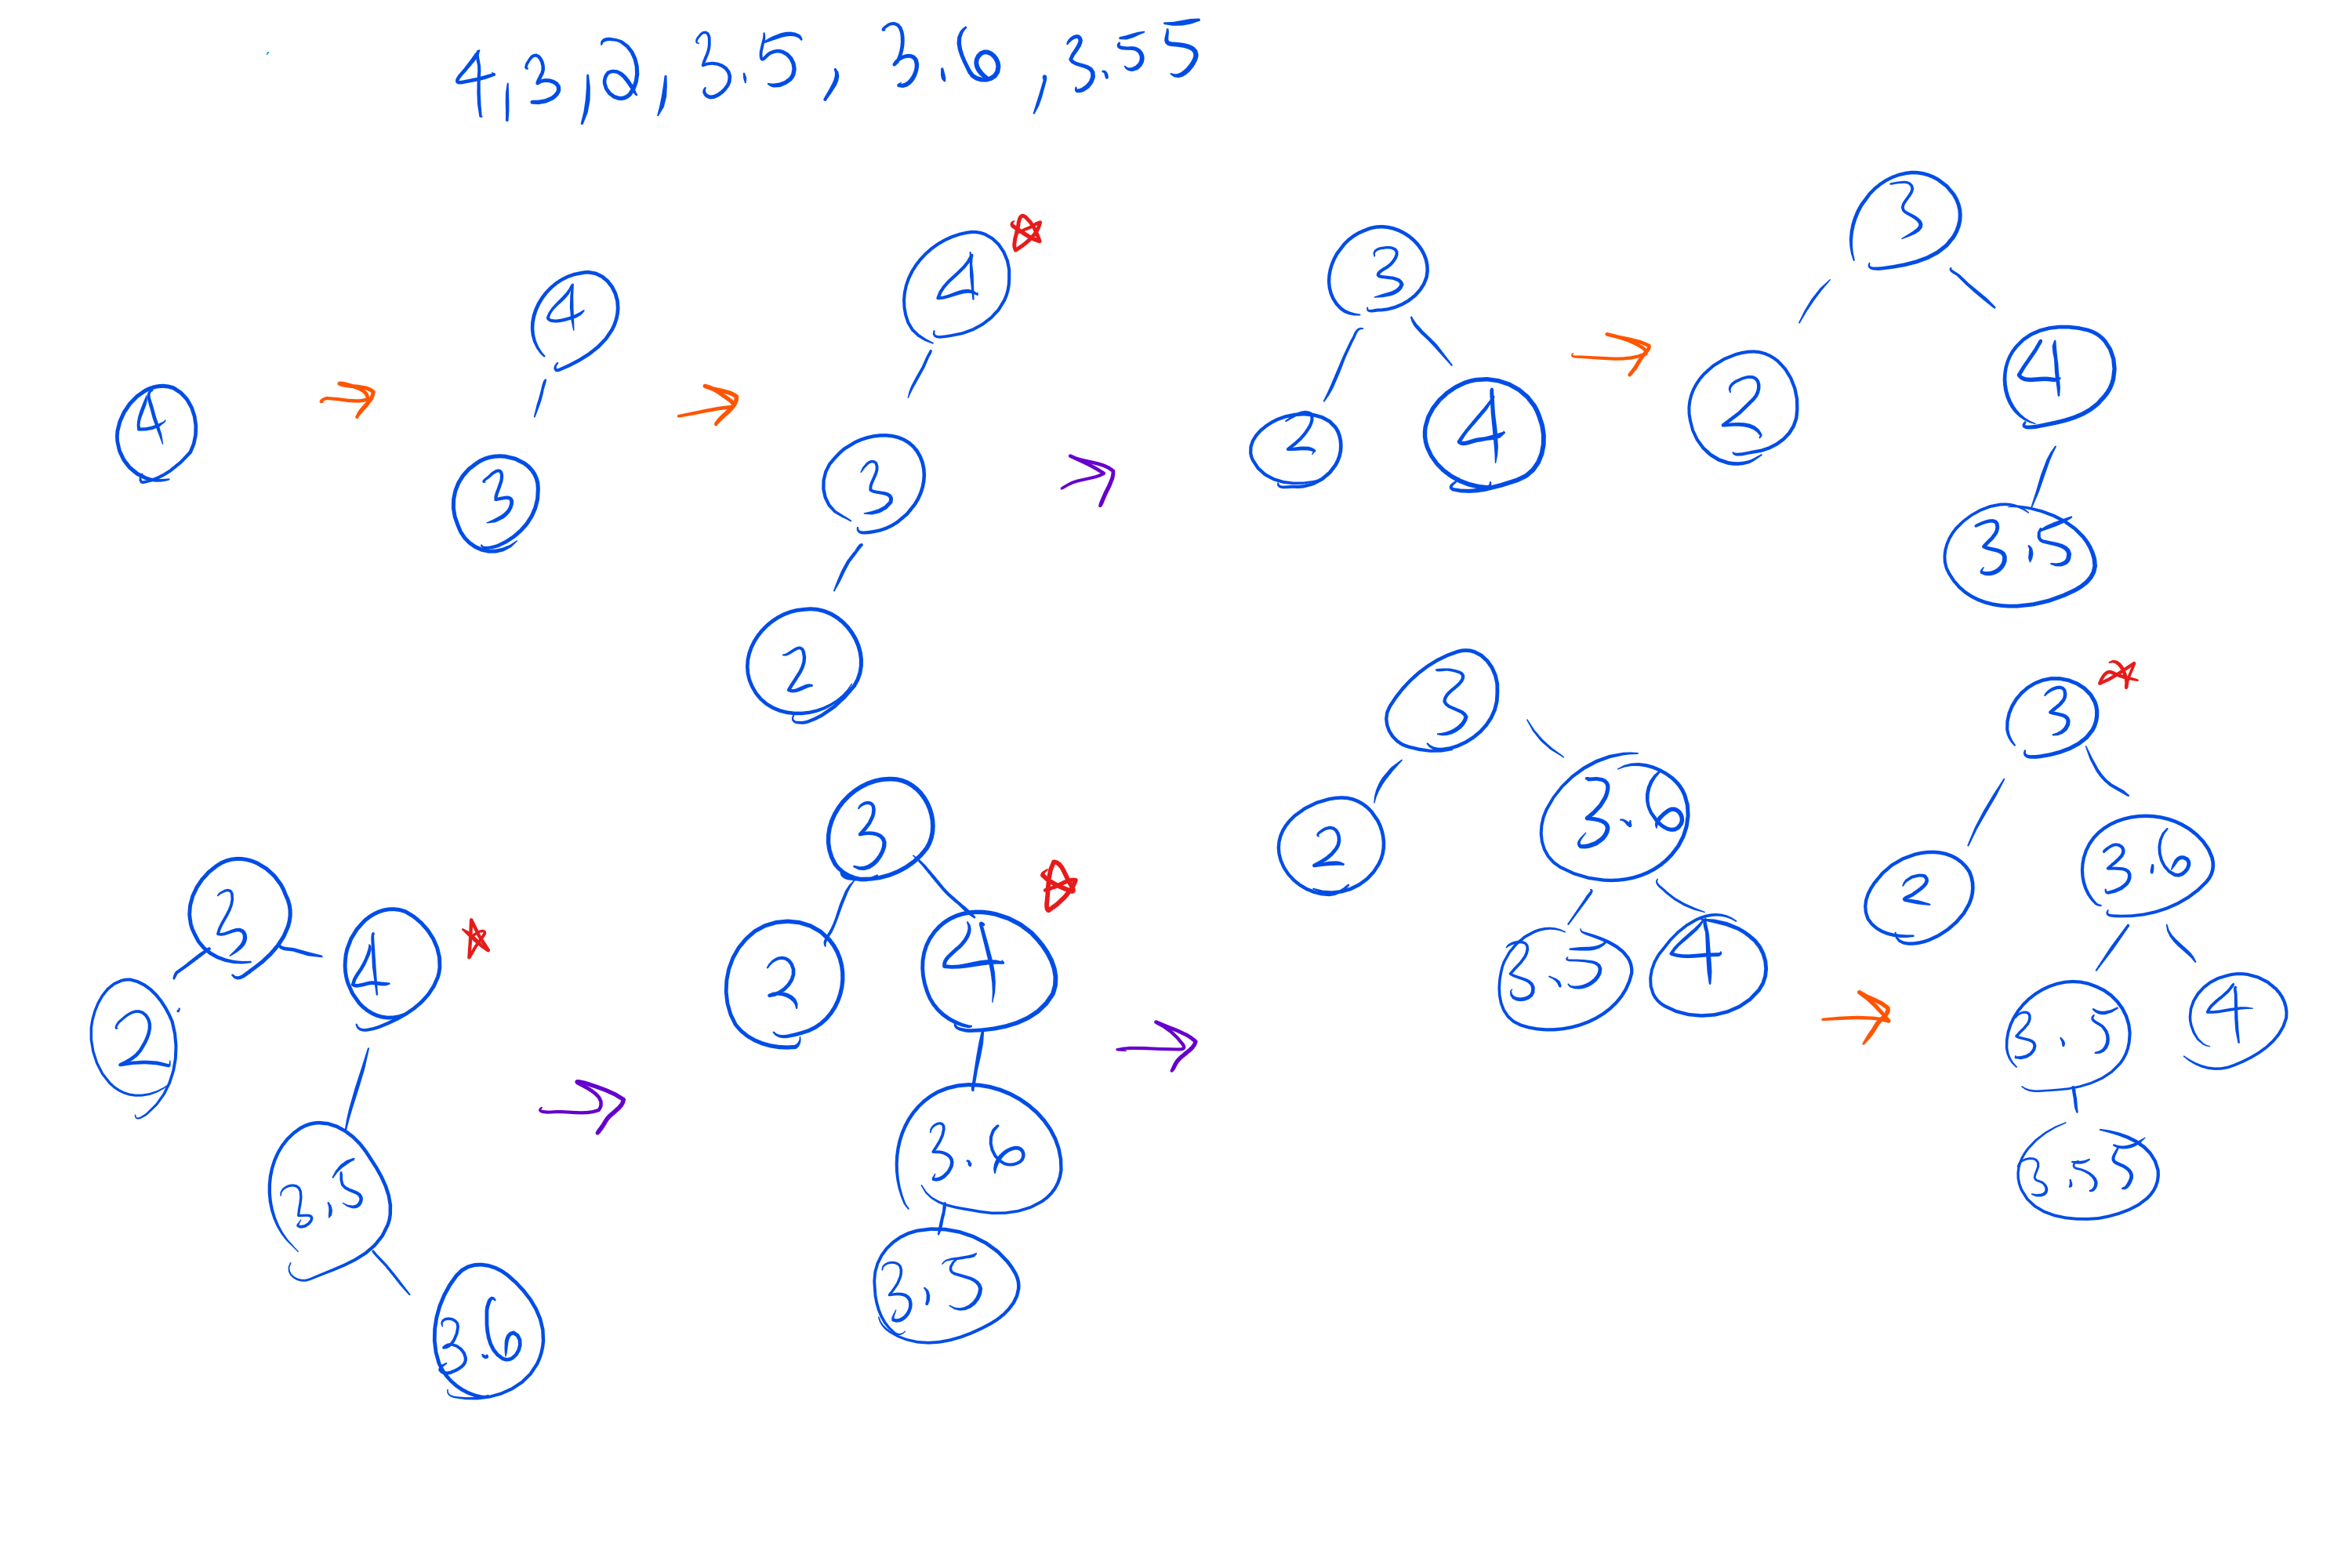 4,3,2,3.5, 3.6,3.55
4
4
3
4
3
2
3
2
4
3
2
4
3.5
3
2
4
3.5
3.6
3
2
4
3.6
3.5
3
2
3.6
3.5
4
3
2
3.6
3.5
4
3.55